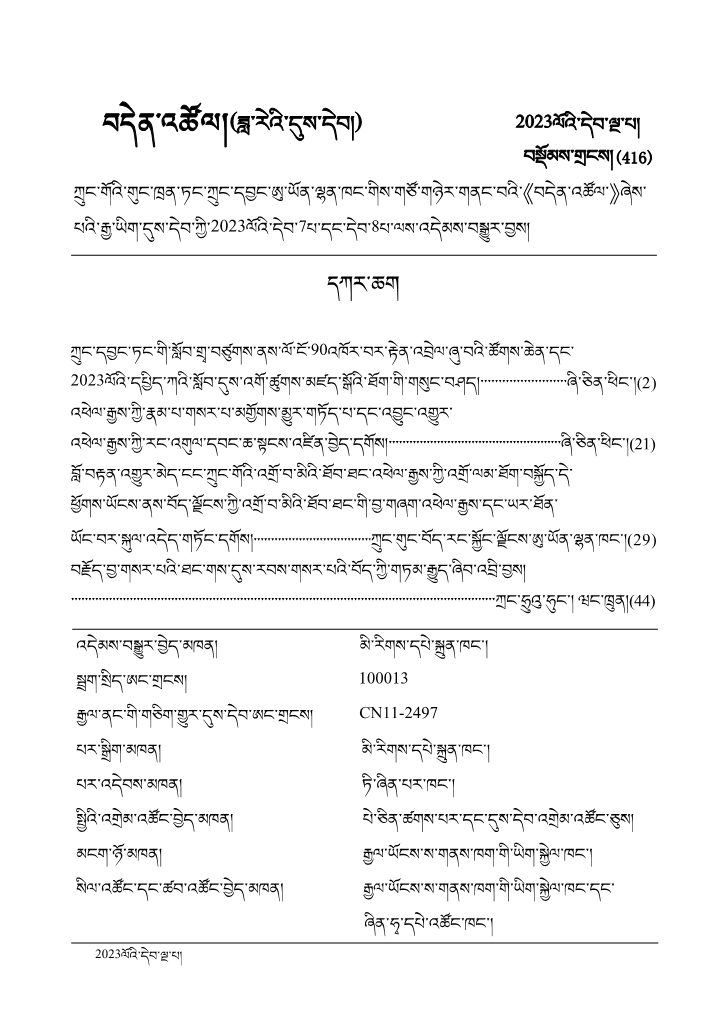 བདེན་འཚོལ།(ཟླ་རེའི་དུས་དེབ།)
2023ལོའི་དེབ་ལྔ་པ།
བསྡོམས་གྲངས།(416)
ཀྲུང་གོའི་གུང་ཁྲན་ཏང་ཀྲུང་དབྱང་ཨུ་ཡོན་ལྷན་ཁང་གིས་གཙོ་གཉེར་གནང་བའི་《བདེན་འཚོལ་》ཞེས་
པའི་རྒྱ་ཡིག་དུས་དེབ་ཀྱི་2023ལོའི་དེབ་7པ་དང་དེབ་8པ་ལས་འདེམས་བསྒྱུར་བྱས།
དཀར་ཆག
ཀྲུང་དབྱང་ཏང་གི་སློབ་གྲྭ་བཙུགས་ནས་ལོ་ངོ་90འཁོར་བར་རྟེན་འབྲེལ་ཞུ་བའི་ཚོགས་ཆེན་དང་
2023ལོའི་དཔྱིད་ཀའི་སློབ་དུས་འགོ་ཚུགས་མཛད་སྒོའི་ཐོག་གི་གསུང་བཤད།························ཞི་ཅིན་ཕིང་།(2)
འཕེལ་རྒྱས་ཀྱི་རྣམ་པ་གསར་པ་མགྱོགས་མྱུར་གཏོད་པ་དང་འབྱུང་འགྱུར་
འཕེལ་རྒྱས་ཀྱི་རང་འགུལ་དབང་ཆ་སྟངས་འཛིན་བྱེད་དགོས།················································ཞི་ཅིན་ཕིང་།(21)
བློ་བརྟན་འགྱུར་མེད་ངང་ཀྲུང་གོའི་འགྲོ་བ་མིའི་ཐོབ་ཐང་འཕེལ་རྒྱས་ཀྱི་འགྲོ་ལམ་ཐོག་བསྐྱོད་དེ་
ཕྱོགས་ཡོངས་ནས་བོད་ལྗོངས་ཀྱི་འགྲོ་བ་མིའི་ཐོབ་ཐང་གི་བྱ་གཞག་འཕེལ་རྒྱས་དང་ཡར་ཐོན་
ཡོང་བར་སྐུལ་འདེད་གཏོང་དགོས།································ཀྲུང་གུང་བོད་རང་སྐྱོང་ལྗོངས་ཨུ་ཡོན་ལྷན་ཁང་།(29)
བརྗོད་བྱ་གསར་པའི་ཐང་གས་དུས་རབས་གསར་པའི་བོད་ཀྱི་གཏམ་རྒྱུད་ཞིབ་འབྲི་བྱས།
······················································································································ཀྲང་ཧྲུའུ་ཧུང་། ཝང་ཁྲུན།(44)
འདེམས་བསྒྱུར་བྱེད་མཁན། མི་རིགས་དཔེ་སྐྲུན་ཁང་།
སྦྲག་སྲིད་ཨང་གྲངས། 100013
རྒྱལ་ནང་གི་གཅིག་གྱུར་དུས་དེབ་ཨང་གྲངས། CN11-2497
པར་སྒྲིག་མཁན། མི་རིགས་དཔེ་སྐྲུན་ཁང་།
པར་འདེབས་མཁན། ཏི་ཞིན་པར་ཁང་།
སྤྱིའི་འགྲེམ་འཚོང་བྱེད་མཁན། པེ་ཅིན་ཚགས་པར་དང་དུས་དེབ་འགྲེམ་འཚོང་ཅུས།
མངག་ཉོ་མཁན། རྒྱལ་ཡོངས་ས་གནས་ཁག་གི་ཡིག་སྐྱེལ་ཁང་།
སིལ་འཚོང་དང་ཚབ་འཚོང་བྱེད་མཁན། རྒྱལ་ཡོངས་ས་གནས་ཁག་གི་ཡིག་སྐྱེལ་ཁང་དང་
ཞིན་ཧྭ་དཔེ་འཚོང་ཁང་།
2023ལོའི་དེབ་ལྔ་པ།